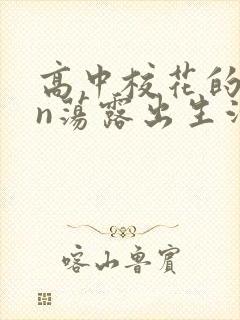 高中校花的
n荡露出生
喀山鲁賓